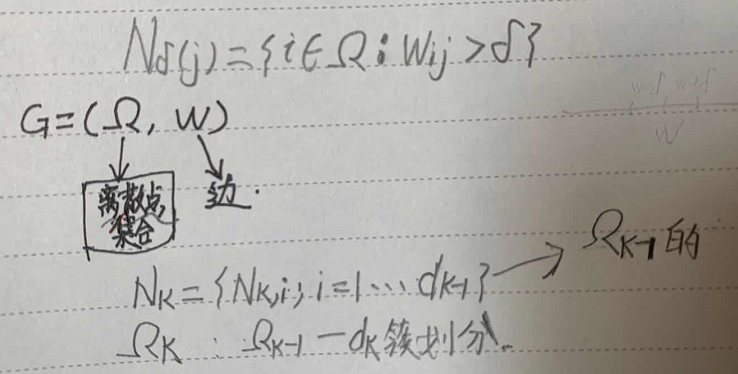 Nδ(j)={i∈Ω:Wij>δ}
G=(Ω, W)
离散点
集合
边.
Nk={Nk,i; i=1...dk-1}
Ωk-1的
Ωk : Ωk-1 — dk簇划分.
W